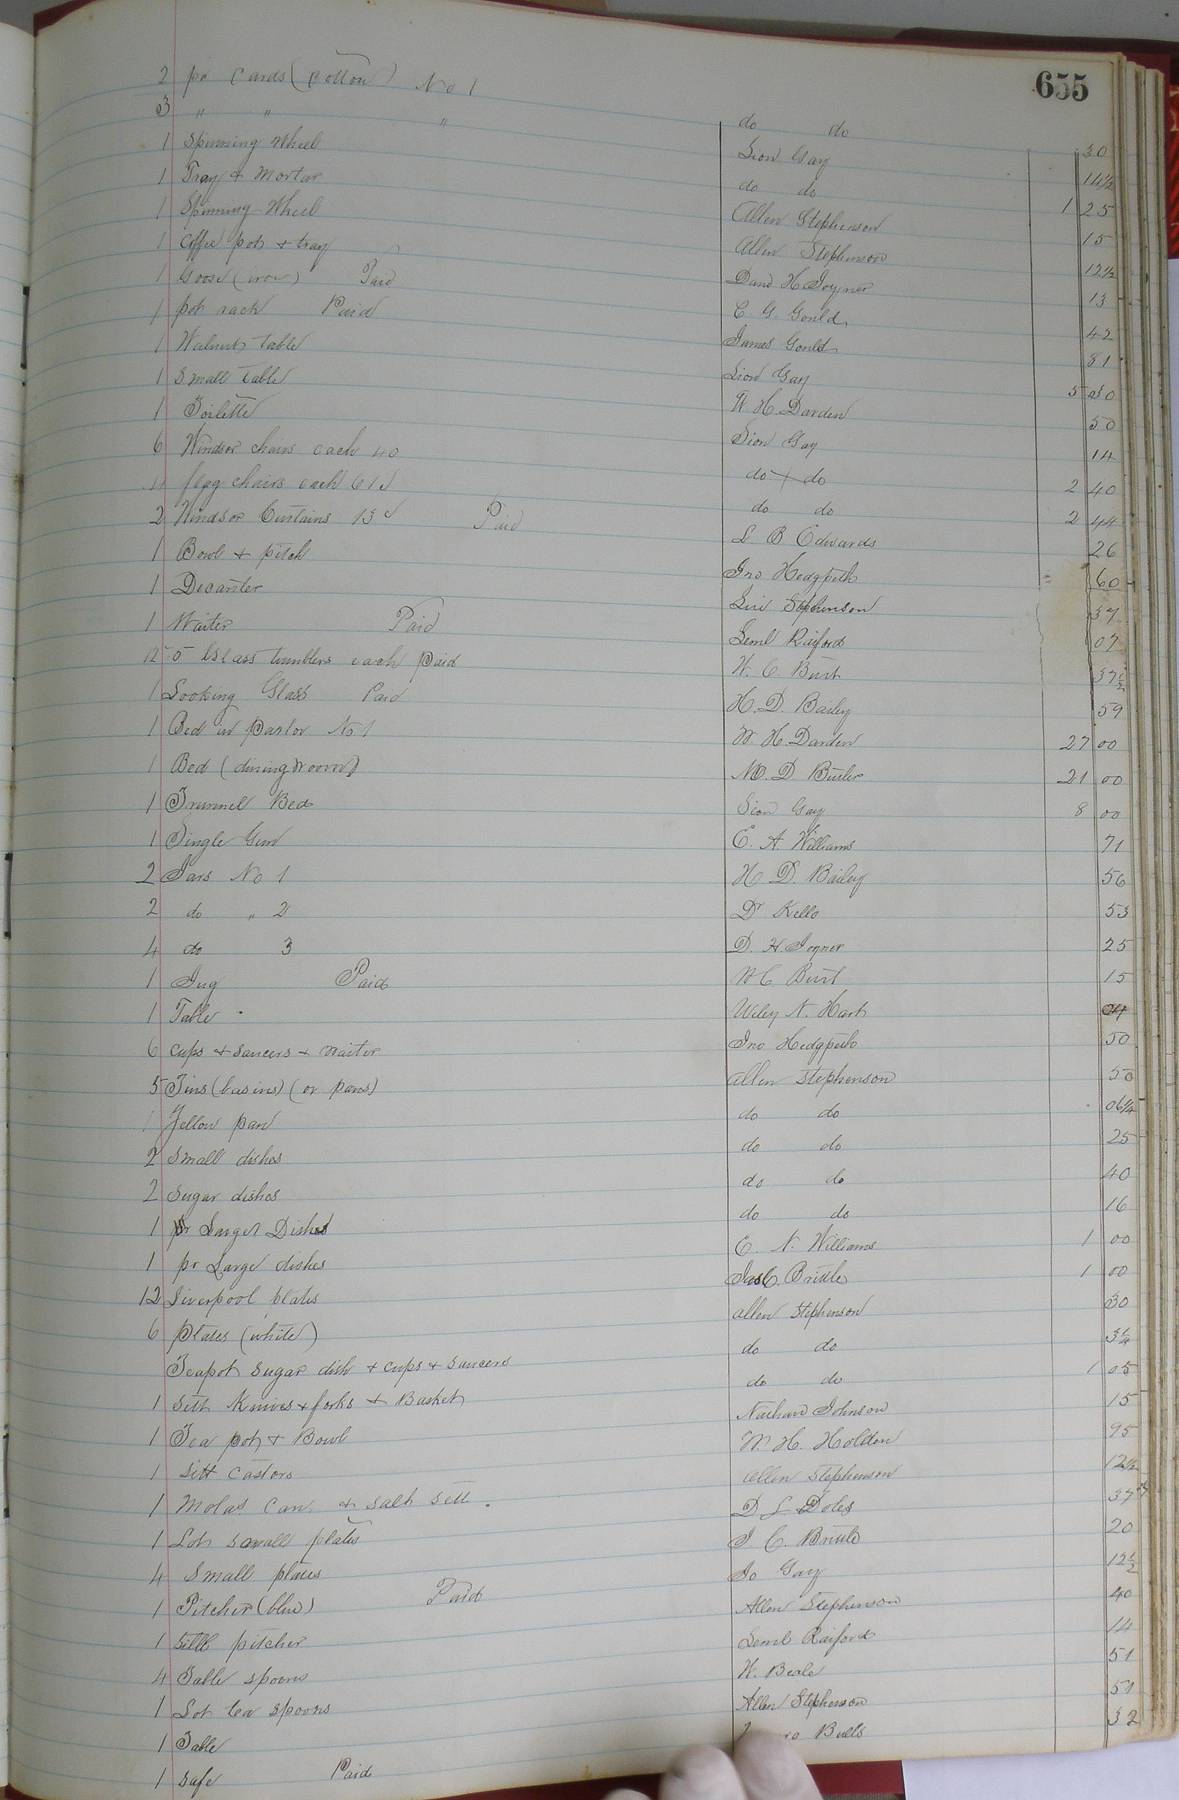 655
2 pr Cards (cotton) No 1 do do 30
3 " " " Sion Gay 14½
1 Spinning Wheel do do 1 25
1 Tray & Mortar Allen Stephenson 15
1 Spinning Wheel Allen Stephenson 12½
1 Coffee pot & tray David H Joyner 13
1 Goose (iron) Paid C. G. Gould 42
1 pot rack Paid James Gould 81
1 Walnut table Sion Gay 5 50
1 Small table W H Darden 50
1 Toilette Sion Gay 14
6 Windsor chairs each 40 do do 2 40
4 flag chairs each 61 do do 2 44
2 Window Curtains 13 Paid L B Edwards 26
1 Bowl & pitch Jno Hedgpeth 60
1 Decanter Levi Stephenson 37
1 Waiter Paid Leml Raiford 07
12 Glass tumblers each Paid W. C. Burt 37½
1 Looking Glass Paid H. D. Bailey 59
1 Bed in parlor No 1 W H Darden 27 00
1 Bed (dining room) M. D Butler 21 00
1 Trunnel Bed Sion Gay 8 00
1 Single Gun E. A. Williams 71
2 Jars No 1 H D. Bailey 56
2 do " 2 Dr Kello 53
4 do 3 D. H Joyner 25
1 Jug Paid W C Burt 15
1 Table Wiley N. Hart 04
6 cups & saucers & waiter Jno Hedgpeth 50
5 Tins (basins) (or pans) Allen Stephenson 50
1 Yellow pan do do 06¼
2 Small dishes do do 25
2 Sugar dishes do do 40
1 pr Larger Dishes do do 16
1 pr Large dishes E. A. Williams 1 00
12 Liverpool plates Jas C. Brittle 1 00
6 plates (white) Allen Stephenson 30
Teapot sugar dish & cups & saucers do do 3¼
1 Sett Knives & forks & Basket do do 1 05
1 Tea pot & Bowl Nathan Johnson 15
1 Sett Castors W. H. Holden 95
1 Molas Can & salt sett Allen Stephenson 12½
1 Lot small plates D L Doles 37½
4 Small plates J C. Brittle 20
1 Pitcher (blue) Paid Jo Gay 12½
1 pitcher Allen Stephenson 40
4 Table spoons Leml Raiford 14
1 Lot tea spoons W. Beale 51
1 Table Allen Stephenson 51
1 Safe Paid Bulls 32